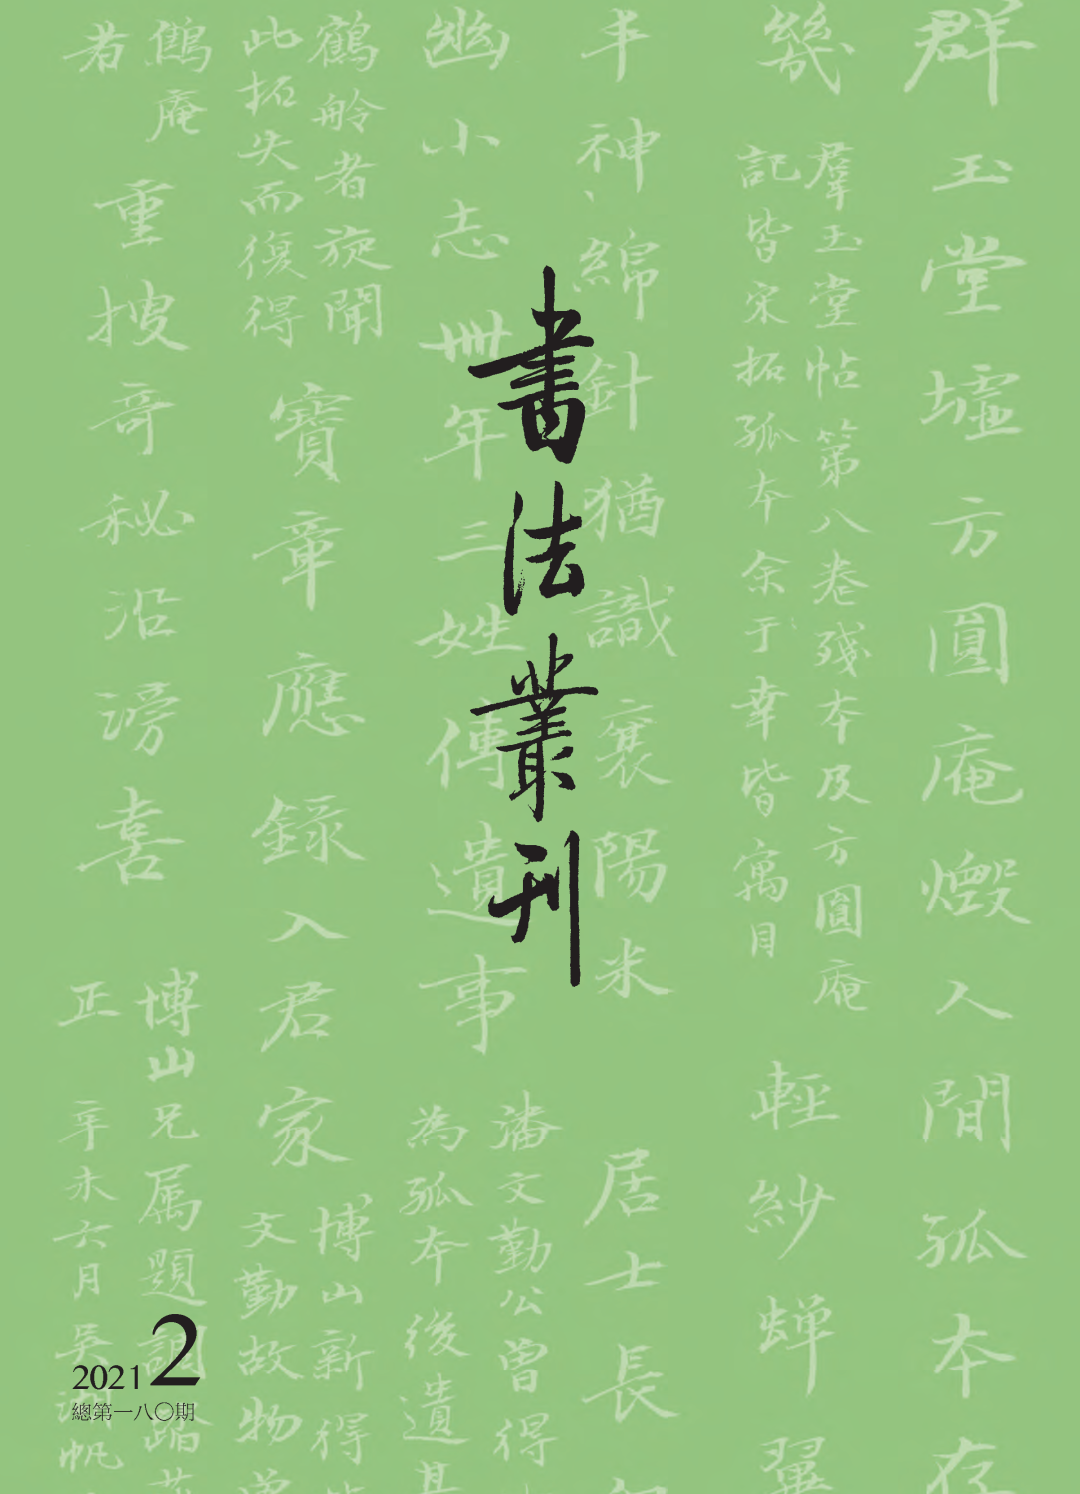 書法叢刊
2021 2
總第一八〇期
群玉堂墟方圓庵燬人間孤本存
幾
羣玉堂帖第八卷殘本及方圓庵
記皆宋拓孤本余于幸皆寓目
輕紗蟬翼
半神綿針猶識襄陽米
居士長
幽小志卅年三姓傳遺事
潘文勤公曾得
為孤本後遺
鶴舲者旋聞
此拓失而復得
寶章應錄入君家
博山新得
文勤故物
鶴庵
者
重披奇秘沿滂喜
博山兄属題調踏莎
正
辛未六月吳湖帆